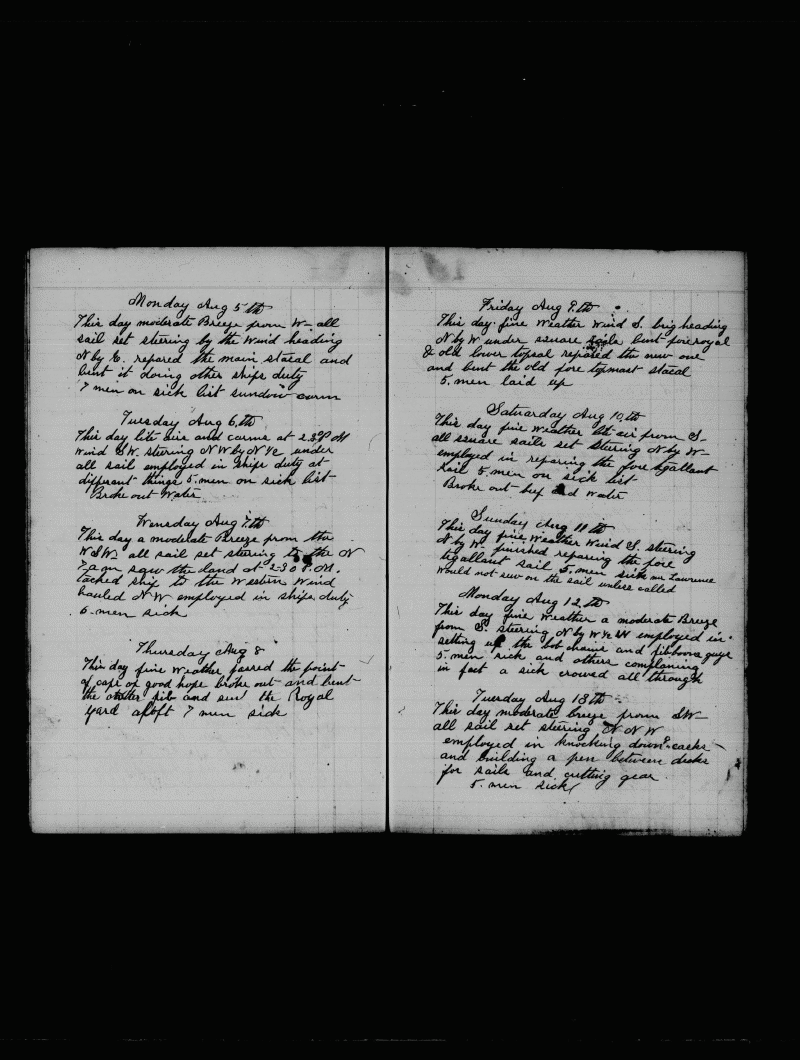 Monday Aug 5th
This day moderate Breeze from W- all
sail set steering by the Wind heading
N by E. repared the main stacal and
bent it doing other ships duty
7 men on sick list sundow carm
Tuesday Aug 6.th
This day lite airs and carms at 2.30 P M
wind S.W. steering N W by N ½ under
all sail employed in ships duty at
different things 5. men on sick list
Broke out Water
Wensday Aug 7th
This day a moderate Breeze from the
W S W. all sail set steering to the N
7 a m saw the land at 2-30 P. M.
tacked ship to the Western Wind
hauled N W employed in ships duty
6. men sick
Thursday Aug 8
This day fine Weather parred the point
of cape of good hope broke out and bent
the other jib and sent the Royal
yard aloft 7 men sick
Friday Aug 9.th
This day fine Weather Wind S. brig heading
N by W under sqare sails bent fore royal
& old lower topsal repared the new one
and bent the old fore topmast stacal
5. men laid up
Saturarday Aug 10.th
This day fine Weather lite air from S-
all square sails set steering N by W-
employed in reparing the fore tgallant
sail 5. men on sick list
Broke out beef and water
Sunday Aug 11th
This day fine Weather Wind S. steering
N by W. finished reparing the fore
tgallant sail 5. men sick mr Lawrence
would not sew on the sail unless called
Monday Aug 12.th
This day fine Weather a moderate Breeze
from S. steering N by W ½ W employed in
setting up the bob chains and jibboom guys
5. men sick and others complaning
in fact a sick crowd all through
Tuesday Aug 13th
This day moderate breeze from SW
all sail set steering N N W
employed in knocking down casks
and building a pen between decks
for sails and cutting gear
5. men sick